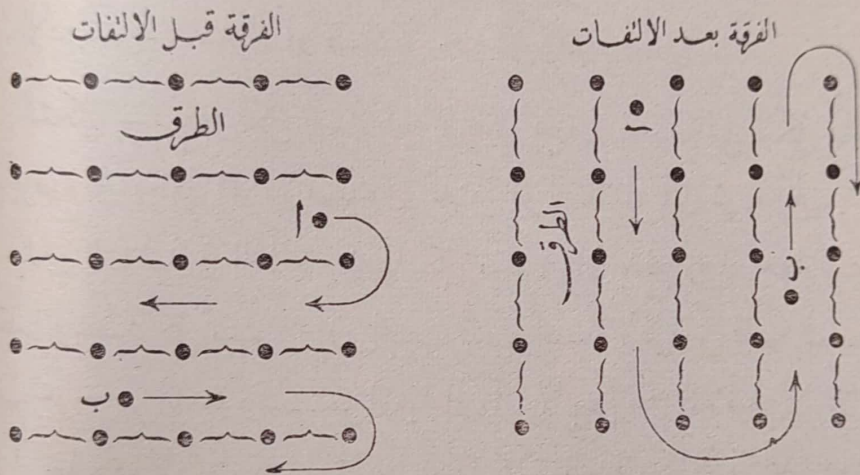 الفرقة بعد الالتفات
أ
الطرق
ب
الفرقة قبل الالتفات
الطرق
أ
ب